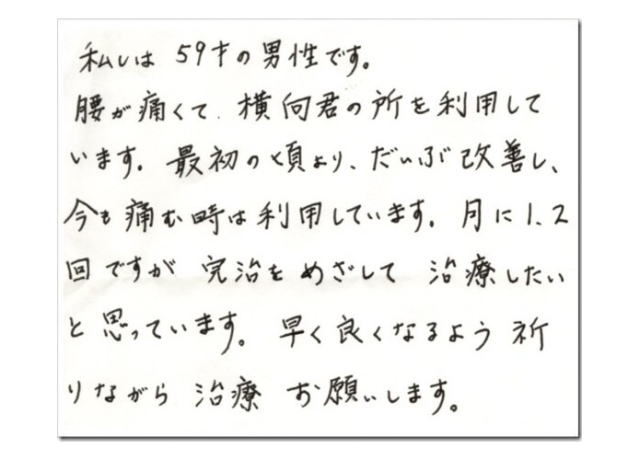 私しは 59才の男性です。
腰が痛くて、横向君の所を利用して
います。最初の頃より、だいぶ改善し、
今も痛む時は利用しています。月に1、2
回ですが 完治をめざして 治療したい
と思っています。早く良くなるよう 祈
りながら 治療 お願いします。